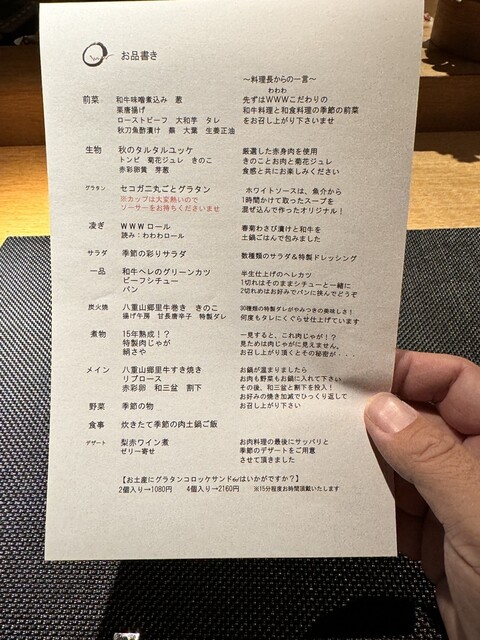 お品書き
～料理長からの一言～
前菜 和牛味噌煮込み 葱
栗唐揚げ
ローストビーフ 大和芋 タレ
秋刀魚酢漬け 蕪 大葉 生姜正油
わわわ
先ずはWWWこだわりの
和牛料理と和食料理の季節の前菜
をお召し上がり下さいませ
生物 秋のタルタルユッケ
トンビ 菊花ジュレ きのこ
赤彩卵黄 芽葱
厳選した赤身肉を使用
きのことお肉と菊花ジュレ
食感と共にお楽しみください
グラタン セコガニ丸ごとグラタン
※カップは大変熱いので
ソーサーをお持ちくださいませ
ホワイトソースは、魚介から
1時間かけて取ったスープを
混ぜ込んで作ったオリジナル！
凌ぎ WWWロール
読み：わわわロール
春菊わさび漬けと和牛を
土鍋ごはんで包みました
サラダ 季節の彩りサラダ
数種類のサラダ&特製ドレッシング
一品 和牛ヘレのグリーンカツ
ビーフシチュー
パン
半生仕上げのヘレカツ
1切れはそのままシチューと一緒に
2切れめはお好みでパンに挟んでどうぞ
炭火焼 八重山郷里牛巻き きのこ
揚げ牛蒡 甘長唐辛子 特製ダレ
30種類の特製ダレがやみつきの美味しさ！
何度もタレにくぐらせ仕上げています
煮物 15年熟成！？
特製肉じゃが
絹さや
一見すると、これ肉じゃが！？
見ためは肉じゃがに見えません。
お召し上り頂くとその秘密が・・・
メイン 八重山郷里牛すき焼き
リブロース
赤彩卵 和三盆 割下
お鍋が温まりましたら
お肉も野菜もお鍋に入れて下さい
その後、和三盆と割下を投入！
お好みの焼き加減でひっくり返して
お召し上がり下さい
野菜 季節の物
食事 炊きたて季節の肉土鍋ご飯
デザート 梨赤ワイン煮
ゼリー寄せ
お肉料理の最後にサッパリと
季節のデザートをご用意
させて頂きました
【お土産にグラタンコロッケサンドorはいかがですか？】
2個入り→1080円 4個入り→2160円 ※15分程度お時間頂戴いたします